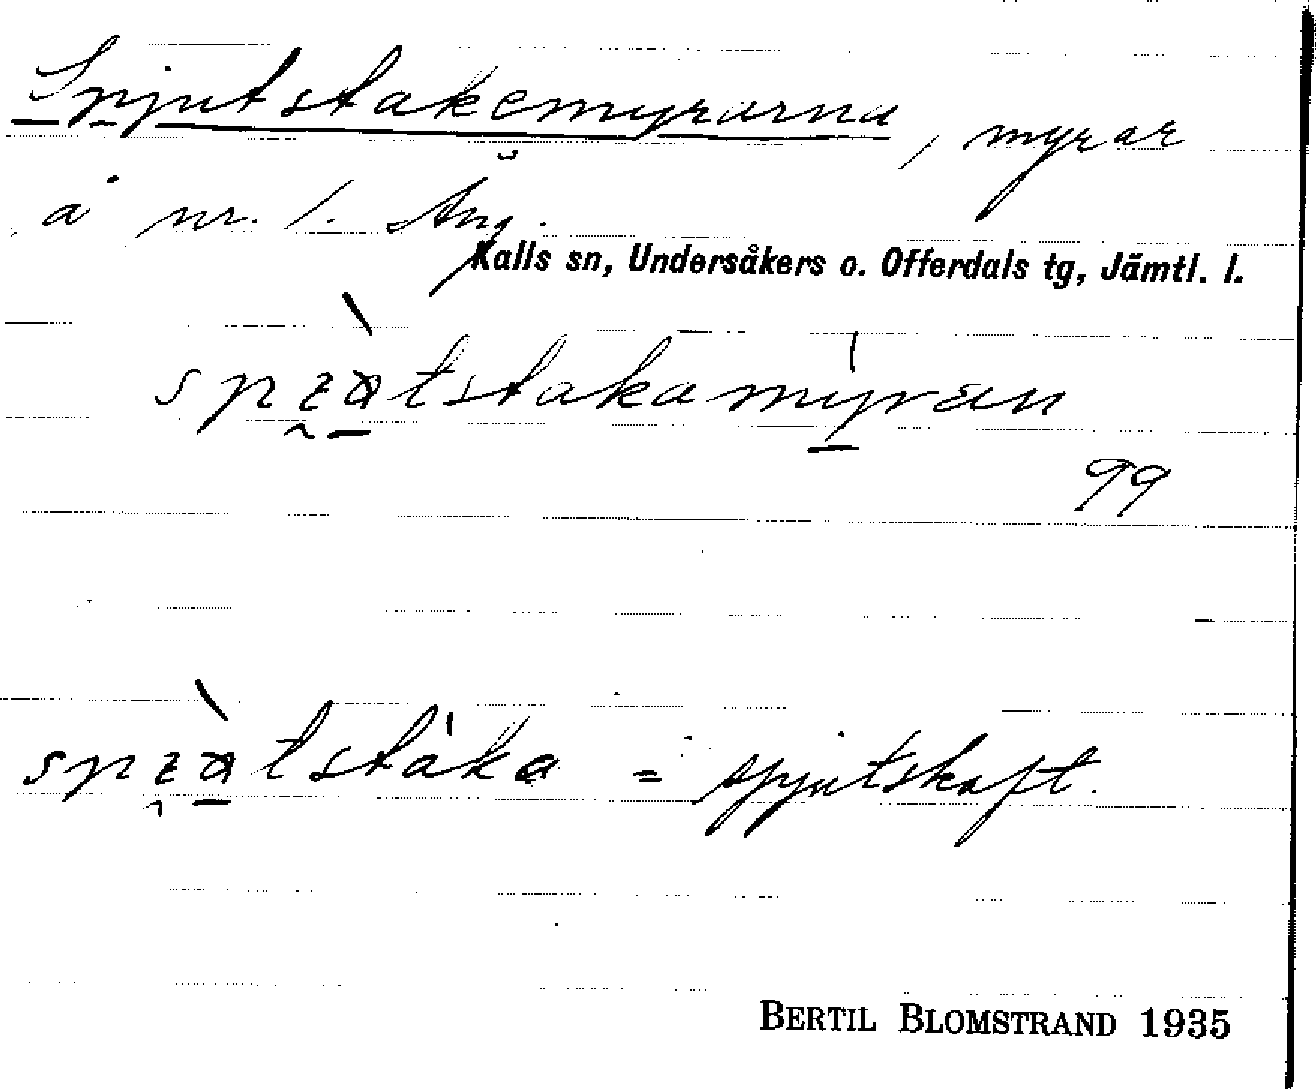 Spjutstakemyrarna, myrar
å nr. 1. Äng.
Kalls sn, Undersåkers o. Offerdals tg, Jämtl. l.
99
= spjutskaft.
BERTIL BLOMSTRAND 1935